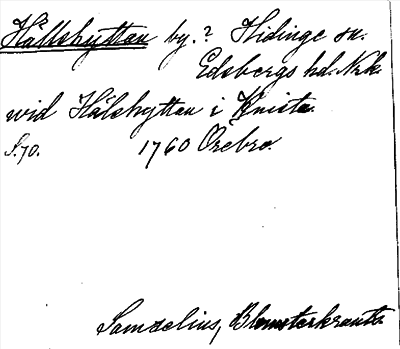 Hällshyttan by.? Hidinge sn.
Edsbergs hd. Nrk.
wid Hälshyttan i Knista.
S.70. 1760 Örebro.
Samzelius, Blomsterkrants